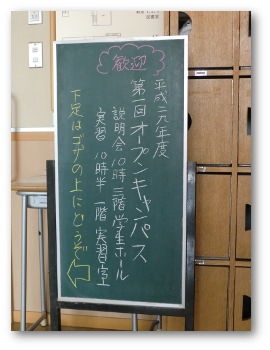 歓迎
平成二九年度
第一回オープンキャンパス
説明会 10時 三階 学生ホール
実習 10時半 一階 実習室
下足はゴザの上にどうぞ